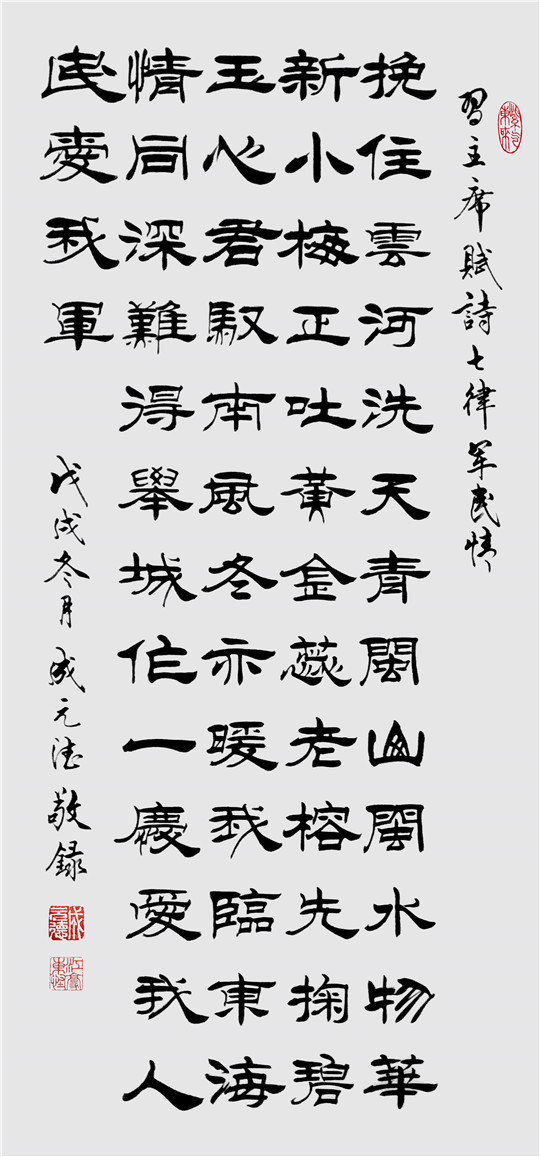 習主席賦詩七律軍民情
挽住雲河洗天青閩山閩水物華
新小梅正吐黃金蕊老榕先掬碧
玉心君馭南風冬亦暖我臨東海
情同深難得舉城作一慶愛我人
民愛我軍
戊戌冬月成元德敬録
成元德